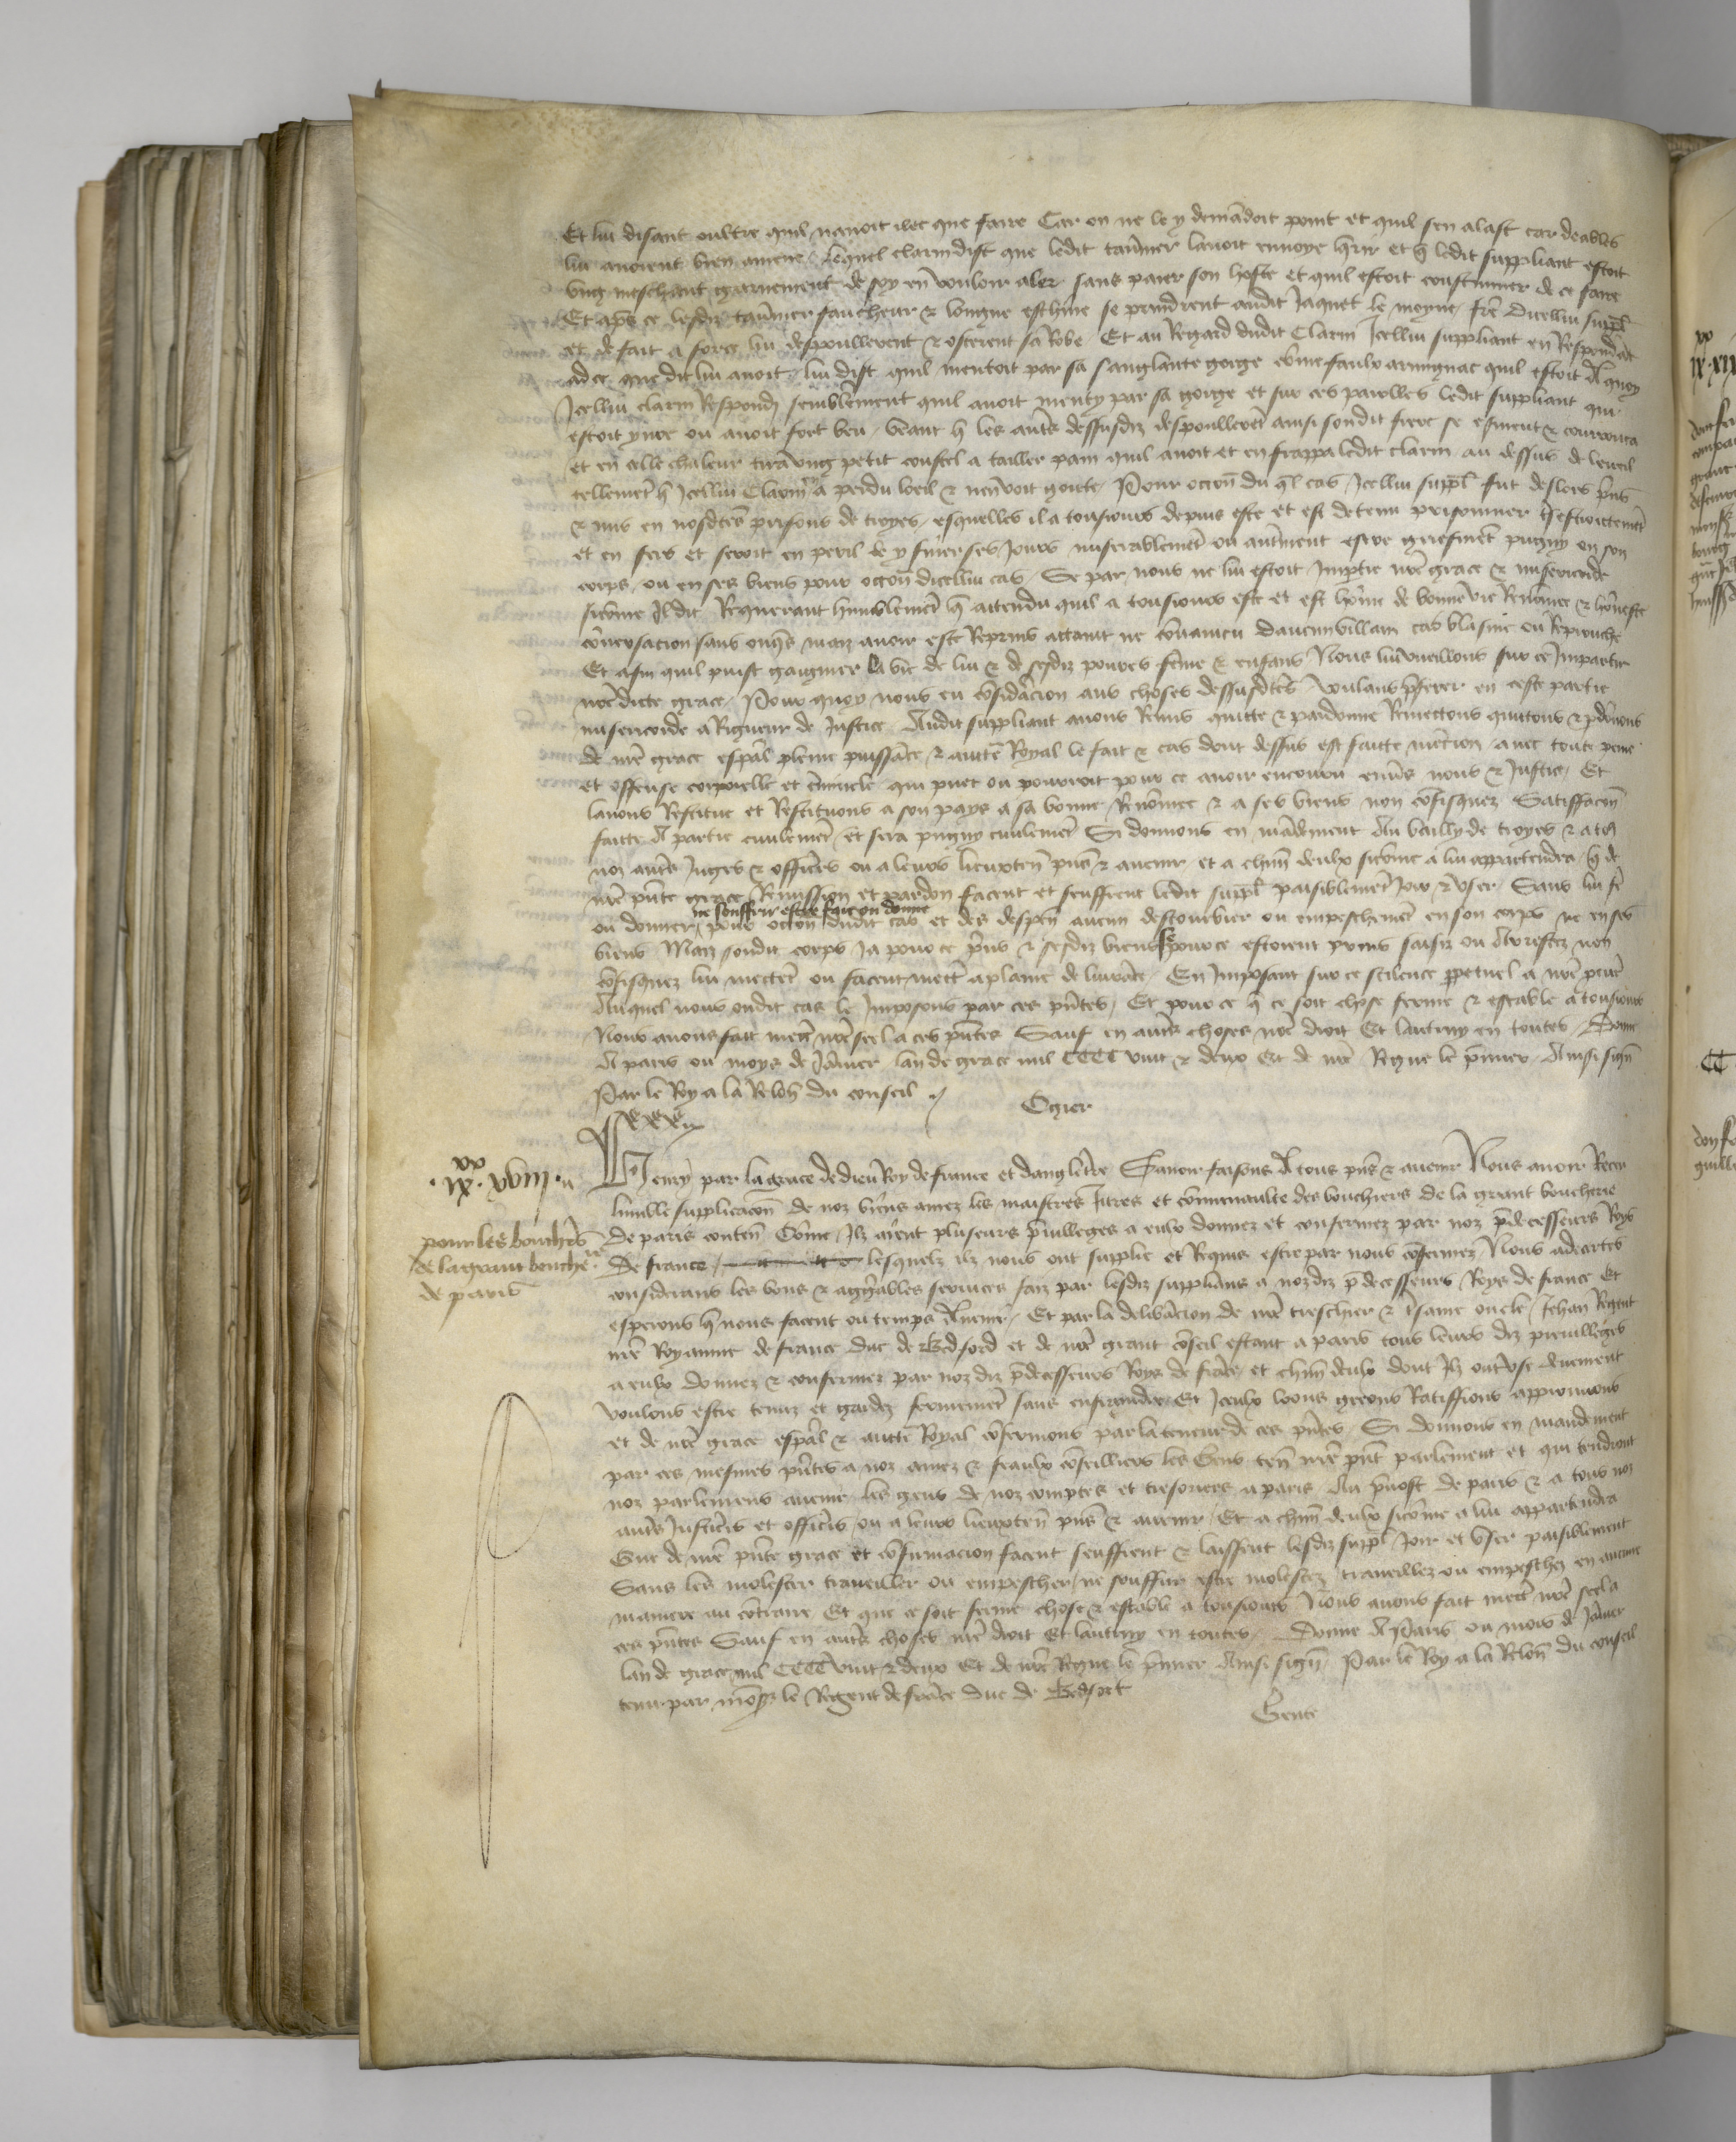 Et lui disant oultre quil navoit ilec que faire Car on ne le y demãdoit point et quil sen alast car deables
lui avoient bien amene / lequel clarin dist que ledit tavnier lavoit envoye qrir et q ledit suppliant estoit
ung meschant garnement de soy en vouloir aler sans paier son hoste et quil estoit coustumier de ce faire
Et aps ce lesdiz tavnier faucheur & longue eschine se prindrent audit Jaquet le moyne / frere dicellui suppl
et de fait a force lui despoullerent & osterent sa Robe Et au Regard dudit Clarin Icellui suppliant en Respondãt
ad ce que dit lui avoit lui dist quil mentoit par sa sanglante gorge cõme faulx armignac quil estoit A quoy
Icellui clarin Respondi semblement quil avoit menty par sa gorge et sur ces parolles ledit suppliant qui
estoit yvre ou avoit fort beu / veant q les autres dessusdiz despoulleret ainsi sondit frere se esmeut & courrouca
et en celle chaleur tira ung petit coustel a tailler pain quil avoit et en frappa ledit clarin au dessus de leueil
tellemet q Icellui Clarin a perdu loeil & nen voit goute / Pour occon du ql cas / Icellui suppl fut deslors prins
& mis en nosdtes prisons de troyes / esquelles il a tousiours depuis este et est detenu prisonnier tsestroictemet
et en fers et seroit en peril de y finer ses Jours miserablemet ou autrement estre griefmet pugny en son
corps / ou en ses biens pour occon dicellui cas / Se par nous ne lui estoit Imptie nre grace & misericorde
sicõme Il dit Requerant humblemet q attendu quil a tousiours este et est hõme de bonne vie Renõmee & hõneste
cõversacion sans onqs mais avoir este Reprins attaint ne cõvaincu daucun villain cas blasme ou Reprouche
Et afin quil puist gaigner la vie de lui & de sesdiz povres fême & enfans Nous lui vueillons sur ce Impartir
nre dicte grace / Pour quoy nous en cõsidâcion aux choses dessusdtes voulans pferer en ceste partie
misericorde a Rigueur de Justice Audit suppliant avons Remis quitte & pardonne Remectons quittons & pdõnons
de nre grace espal pleine puissãce & aucte Royal le fait & cas dont dessus est faicte mêcion / avec toute peine
et offense corporelle et criminele qui puet ou pourroit pour ce avoir encouru envs nous & Justice / Et
lavons Restitue et Restituons a son pays a sa bonne Renõmee & a ses biens non cõfisquez Satisfacon
faicte A partie civilemet / et sera pugny civilemet Si donnons en mãdement Au bailly de troyes & a to9
noz autres Juges & officiers ou a leurs lieuxten pns & avenir / et a chun deulx sicõme a lui appartendra / q de
nre pnte grace Remission et pardon facent et seuffrent ledit suppl paisiblemet Joir & user / Sans lui fe
ne souffrir estre fait ou donne
ou donner / pour occon dudit cas et des despen aucun destourbier ou empeschemet en son corps ne en ses
biens Maiz sondit corps Ja pour ce prins & sesdiz biens se pour ce estoient prins saisiz ou Arrestez non
cõfisquez lui mectet ou facent mectre a plaine delivrãce / En Imposant sur ce scilence ppetuel a nre procur
Auquel nous oudit cas le Imposons par ces pntes / Et pour ce q ce soit chose ferme & estable a tousiours
Nous avons fait mectre nre seel a ces pntes Sauf en autres choses nre droit Et lautruy en toutes / Donne
A paris ou moys de Jãvier lan de grace mil CCCC vint & deux Et de nre Regne le pmier / Ainsi signe
Par le Roy a la Relon du conseil ./
Ogier
ix xx xviii
pour les bouchers
de la grant bouche rie
de paris
Henry par la grace de dieu Roy de france et dangletre Savoir faisons A tous pns & avenir Nous avoir Receu
lumble supplicacon de noz biens amez les maistres Jurez et cõmunaulte des bouchiers de la grant boucherie
de paris conten Cõme / Ilz aient pluseurs privilleges a eulx donnez et confermez par noz pdecesseurs Roys
De france / lesquelz ilz nous ont supplie et Requis estre par nous cõfermez / Nous adcertes
considerans les bons & aggreables services faiz par lesdiz supplians a nozdiz pdecesseurs Roys de france Et
esperons q nous facent ou temps Avenir / Et par la deliberacion de nre treschier & tsame oncle / Jehan Regent
nre Royaume de france Duc de Bedford et de nre grant cõseil estant a paris tous leurs diz privilleges
a eulx donnez & confermez par noz diz pdecesseurs Roys de frãce / et chun deulx dont Ilz ont use deuement
voulons estre tenuz et gardez fermement sans enfraindre / Et Iceulx loons greons Ratiffions approuvons
et de nre grace espal & aucte Royal cõfermons par la teneur de ces pntes / Si donnons en mandement
par ces mesmes pntes a noz amez & feaulx cõseilliers les Gens ten nre pnt parlement et qui tendront
noz parlemens avenir / les gens de noz comptes et tresoriers a paris Au pvost de paris & a tous noz
autres Justiciers et officiers / ou a leurs lieuxten pns & avenir / Et a chun deulx sicõme a lui appartendra
Que de nre pnte grace et cõfirmacion facent seuffrent & laissent lesdiz suppl Joir et user paisiblement
Sans les molester traveiller ou empescher / ne souffrir estre molestez traveillez ou empeschez en aucune
maniere au cõtraire Et que ce soit ferme chose & estable a tousiours Nous avons fait mectre nre seel a
ces pntes Sauf en autres choses nre droit Et lautruy en toutes / Donne A Paris ou mois de Jãvier
lan de grace mil CCCC vint & deux Et de nre Regne le pmier Ainsi signe / Par le Roy a la Relon du conseil
tenu par mõsr le Regent de frãce duc de Bedfort
Gente